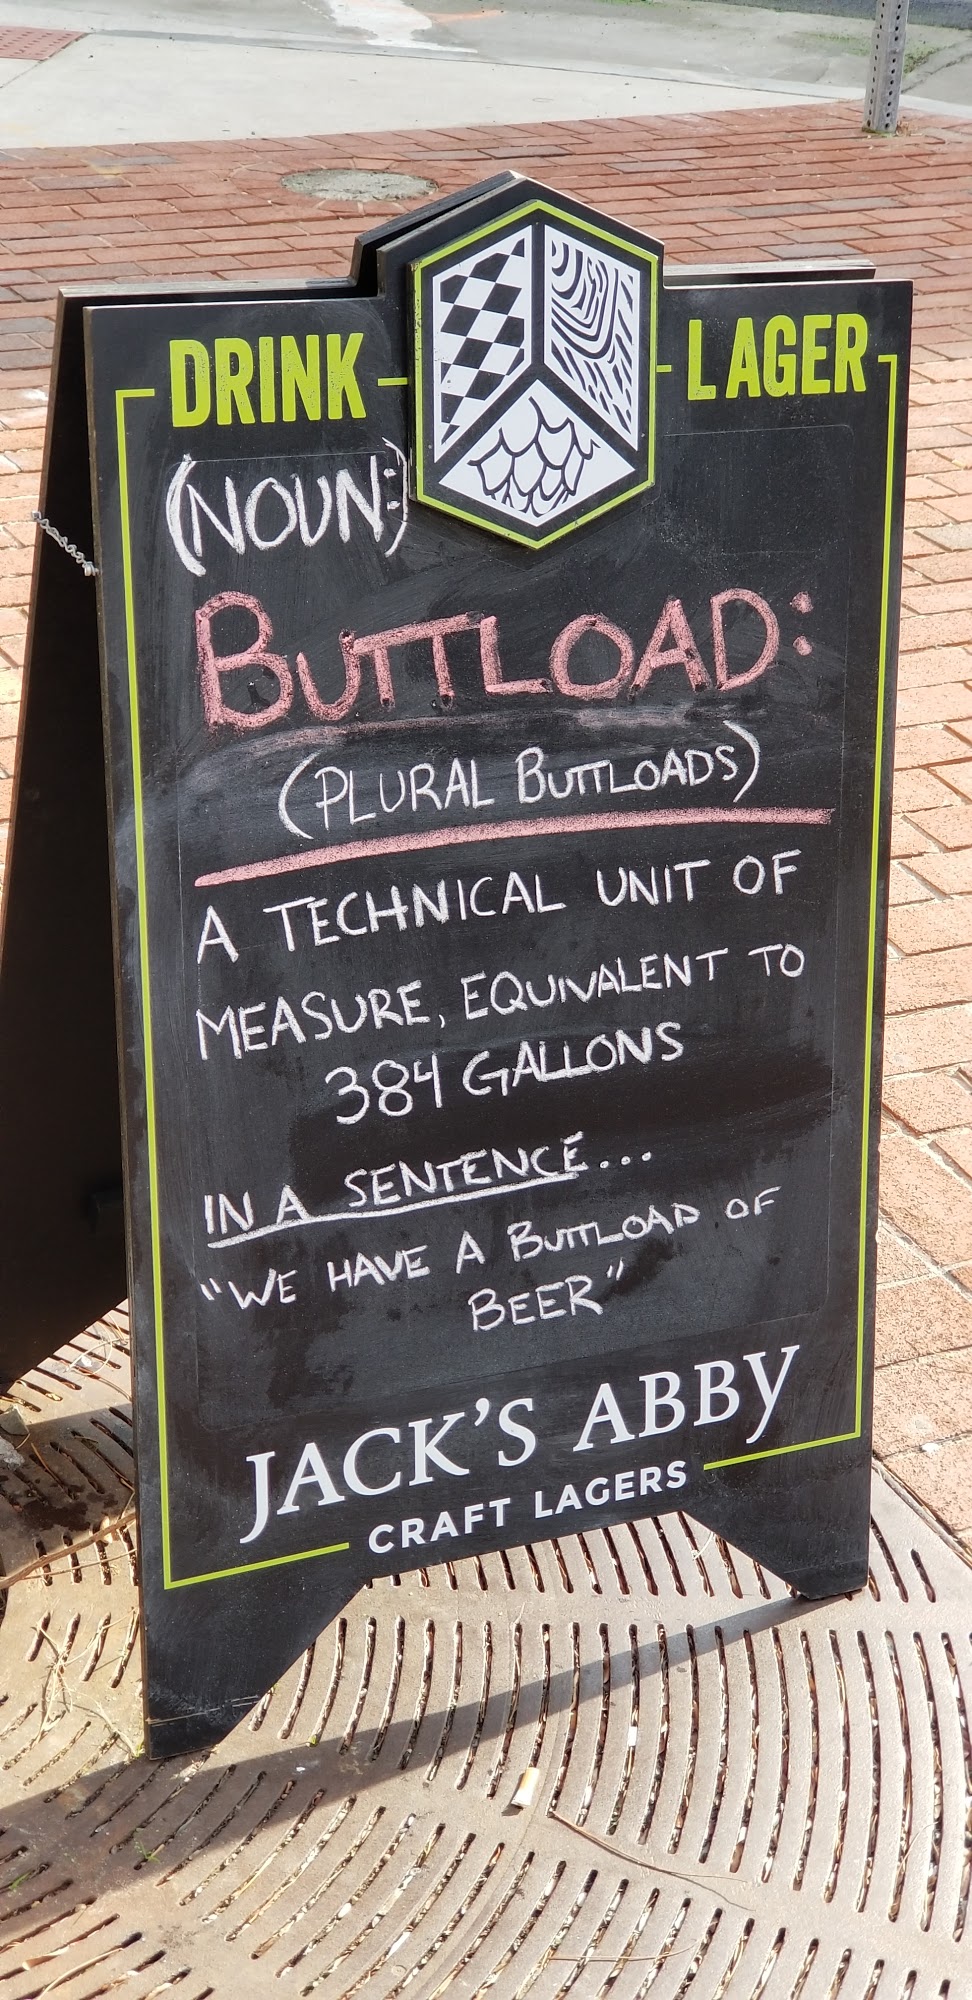 DRINK LAGER
(NOUN:)
BUTTLOAD:
(PLURAL BUTTLOADS)
A TECHNICAL UNIT OF
MEASURE, EQUIVALENT TO
384 GALLONS
IN A SENTENCE...
"WE HAVE A BUTTLOAD OF
BEER"
JACK'S ABBY
CRAFT LAGERS